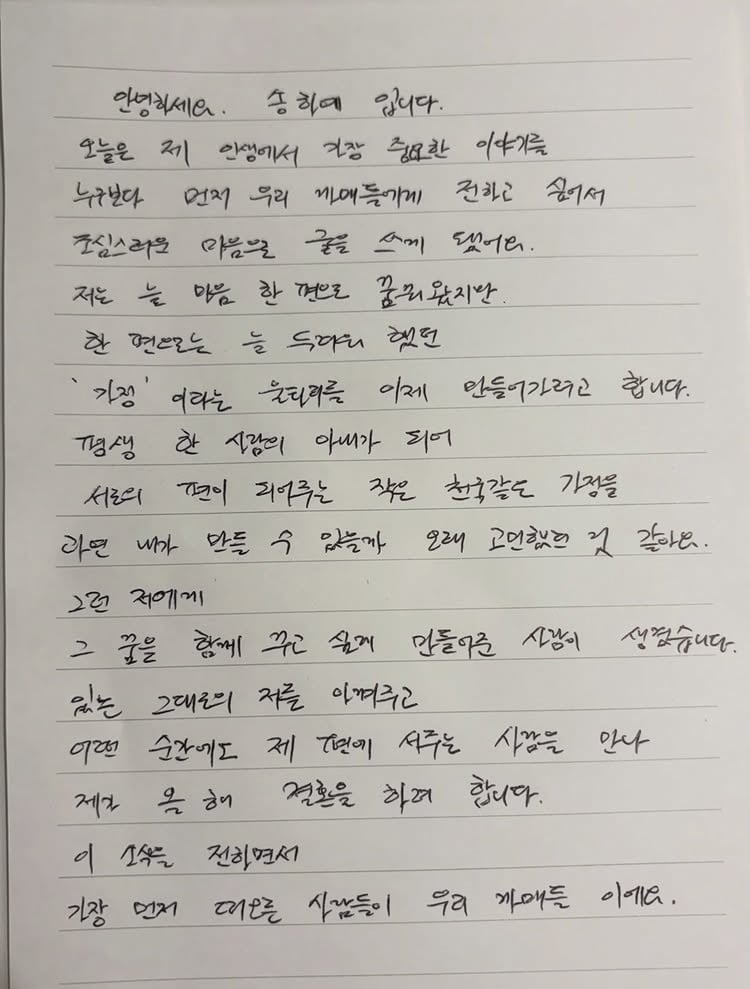 안녕하세요. 송하예 입니다.
오늘은 제 인생에서 가장 중요한 이야기를
누구보다 먼저 우리 까매들에게 전하고 싶어서
조심스러운 마음으로 글을 쓰게 됐어요.
저는 늘 마음 한 편으로 꿈꿔왔지만.
한 편으로는 늘 두려워 했던
'가정' 이라는 울타리를 이제 만들어가려고 합니다.
평생 한 사람의 아내가 되어
서로의 편이 되어주는 작은 천국같은 가정을
과연 내가 만들 수 있을까 오래 고민했던 것 같아요.
그런 저에게
그 꿈을 함께 꾸고 싶게 만들어준 사람이 생겼습니다.
있는 그대로의 저를 아껴주고
어떤 순간에도 제 편에 서주는 사람을 만나
제가 올 해 결혼을 하려 합니다.
이 소식을 전하면서
가장 먼저 떠오른 사람들이 우리 까매들 이에요.